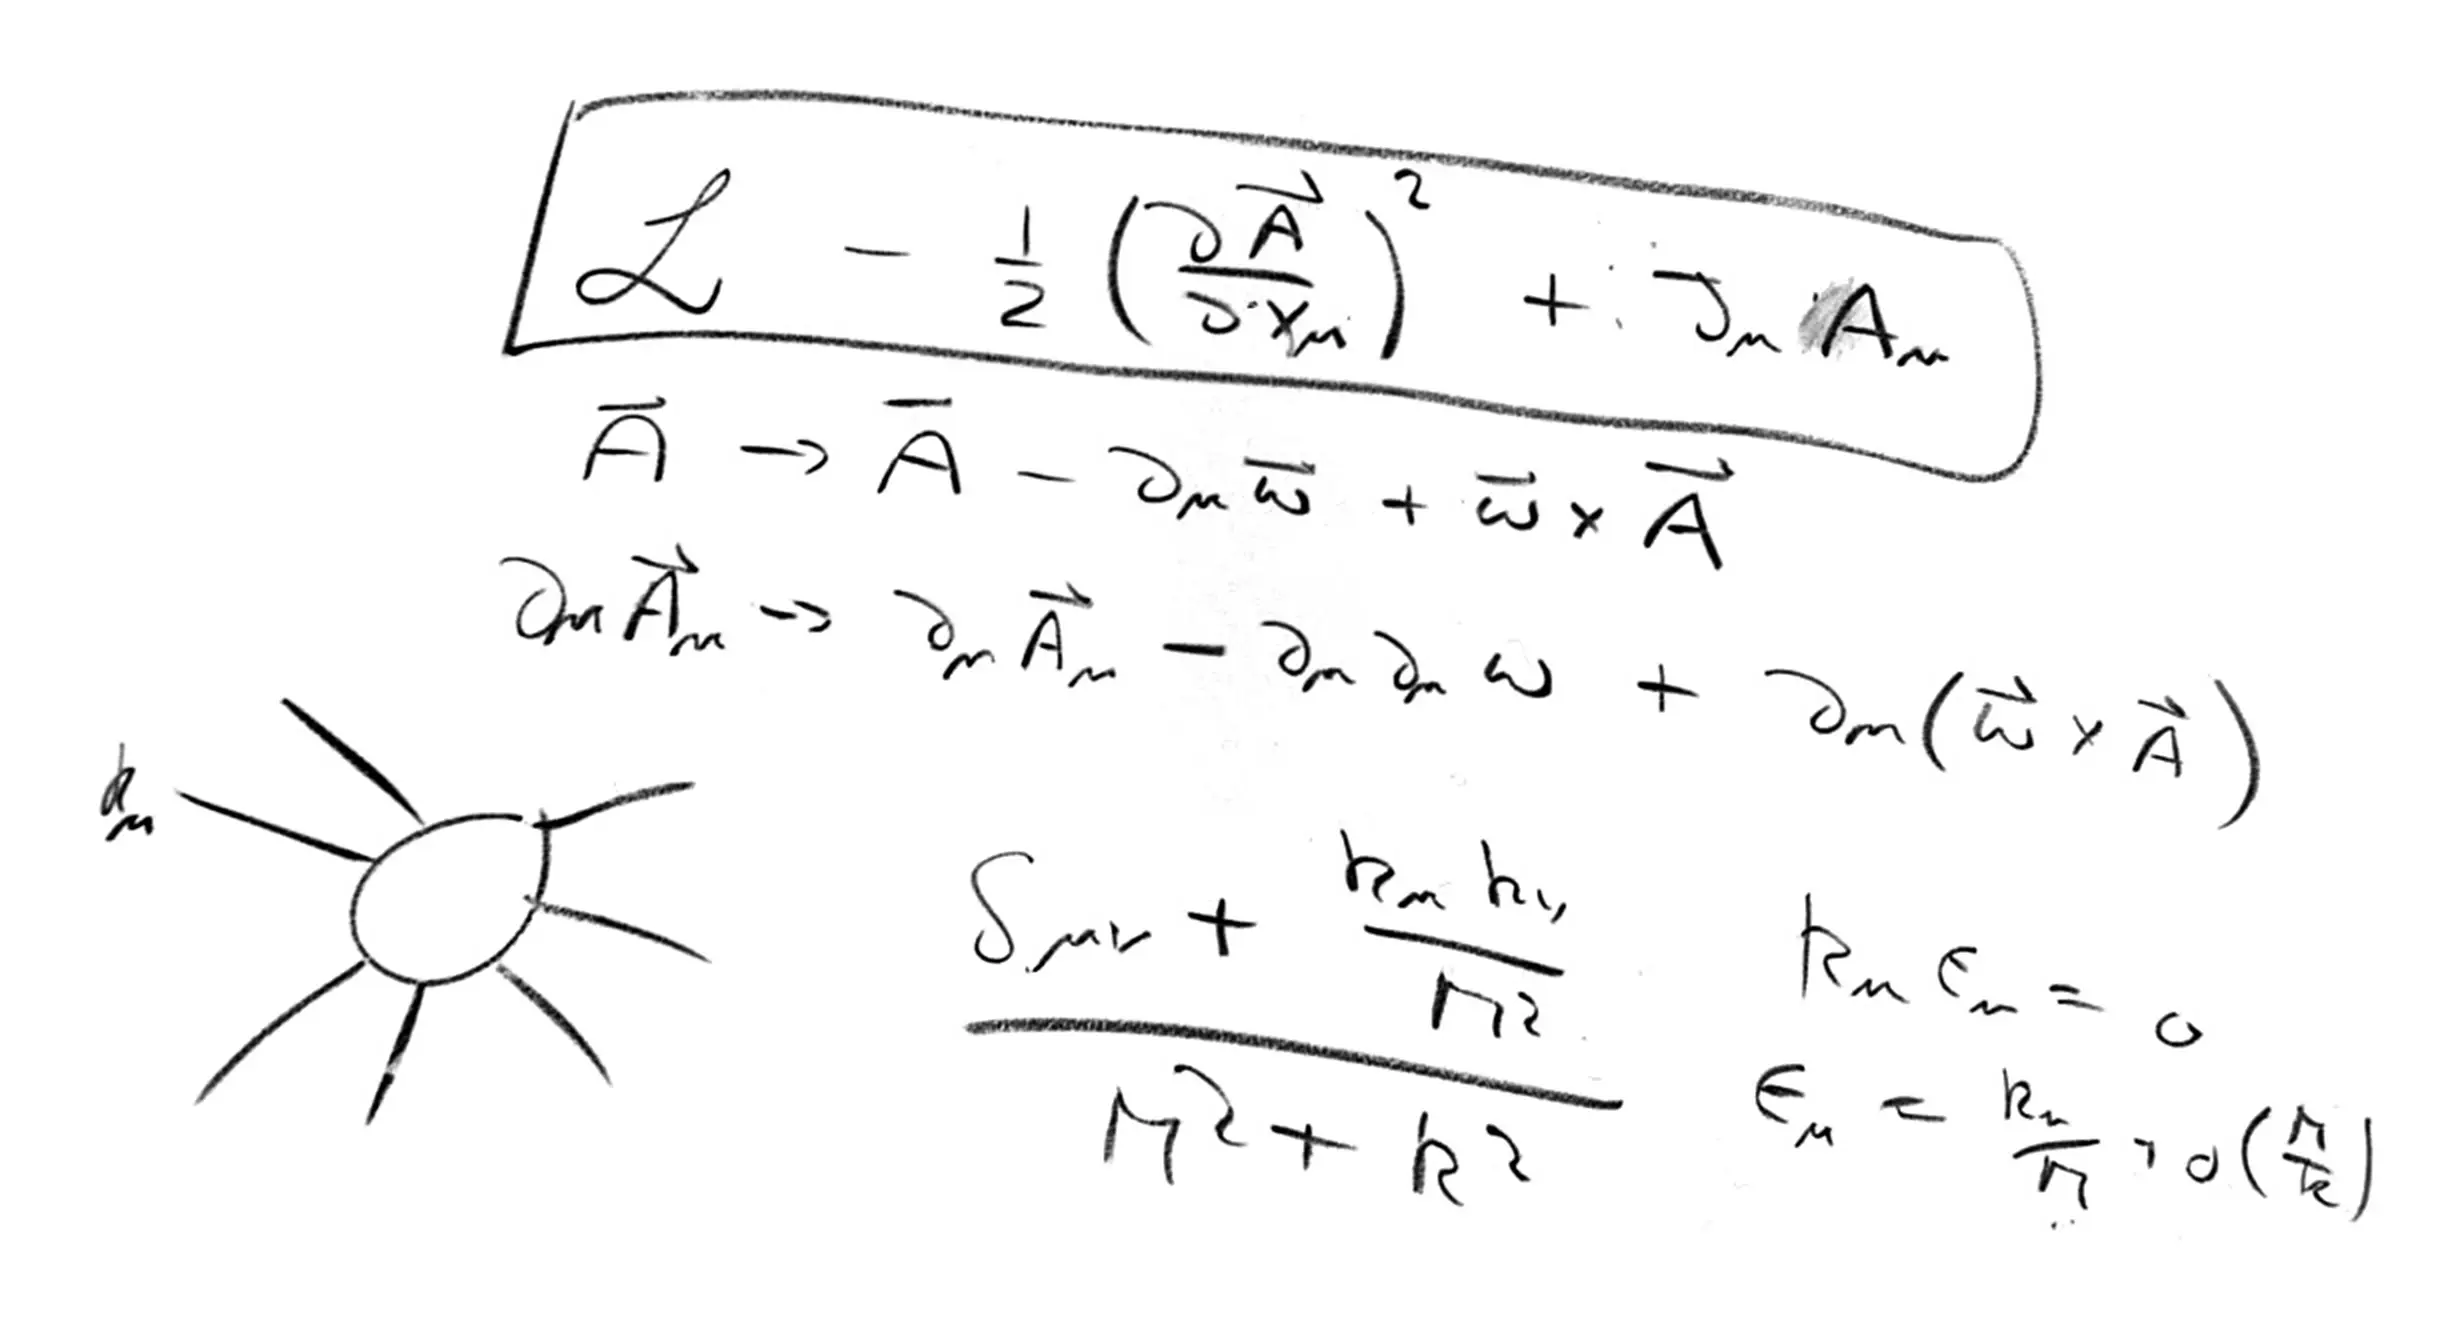 ℒ − 1/2 (∂A⃗/∂x_μ)² + J_μ A_μ
A⃗ → A⃗ − ∂_μ ω⃗ + ω⃗ × A⃗
∂_μ A⃗_μ → ∂_μ A⃗_μ − ∂_μ ∂_μ ω + ∂_μ (ω⃗ × A⃗)
k_μ
(δ_μν + k_μ k_ν / M²) / (M² + k²)
k_μ ε_μ = 0
ε_μ = k_μ/M + O(M/k)